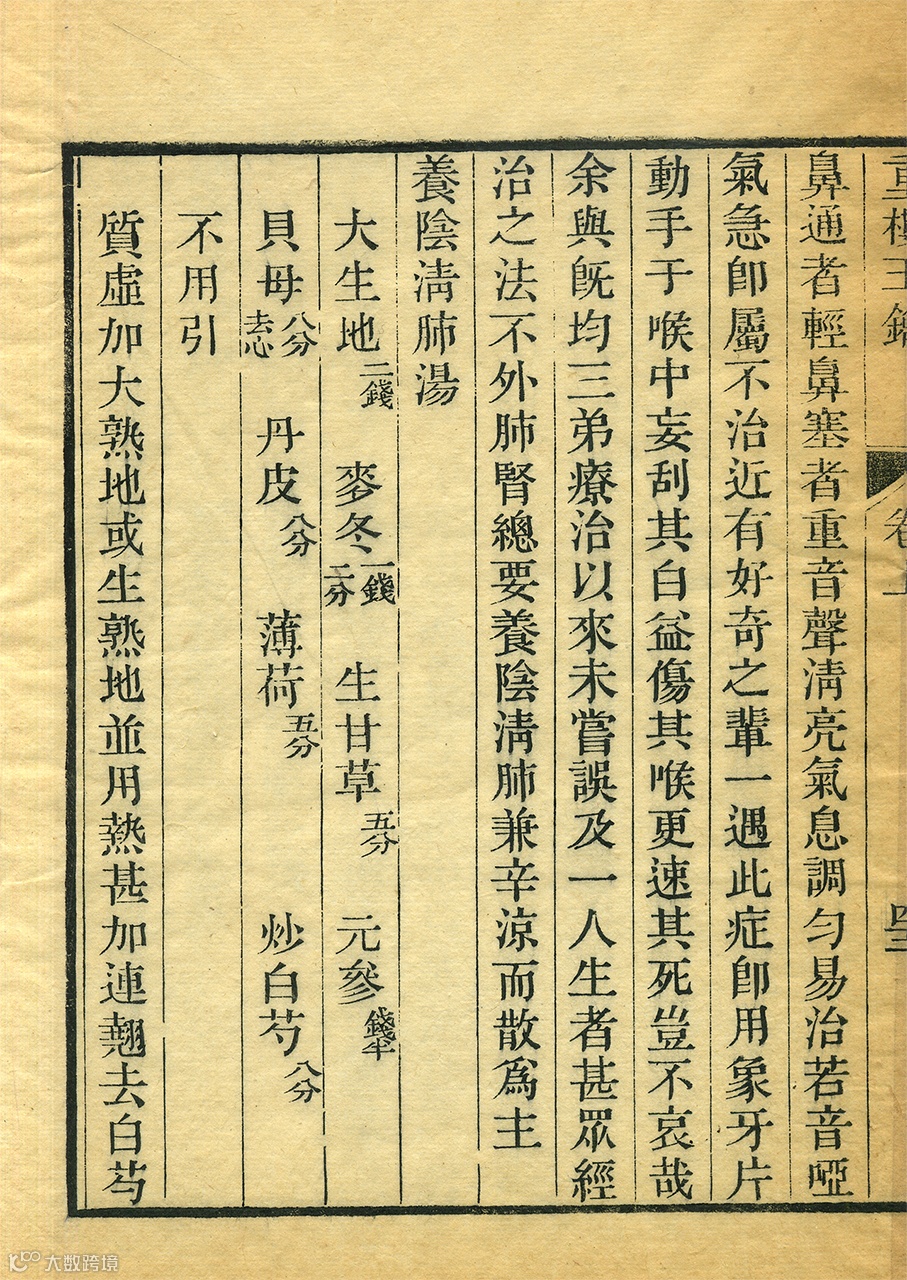 重樓玉鑰 卷上 四三
鼻通者輕鼻塞者重音聲清亮氣息調勻易治若音啞
氣急卽屬不治近有好奇之輩一遇此症卽用象牙片
動手于喉中妄刮其白益傷其喉更速其死豈不哀哉
余與旣均三弟療治以來未嘗誤及一人生者甚眾經
治之法不外肺腎總要養陰淸肺兼辛涼而散爲主
養陰淸肺湯
大生地二錢 麥冬一錢二分 生甘草五分 元參錢半
貝母八分去心 丹皮八分 薄荷五分 炒白芍八分
不用引
質虛加大熟地或生熟地並用熱甚加連翹去白芍
大数跨境